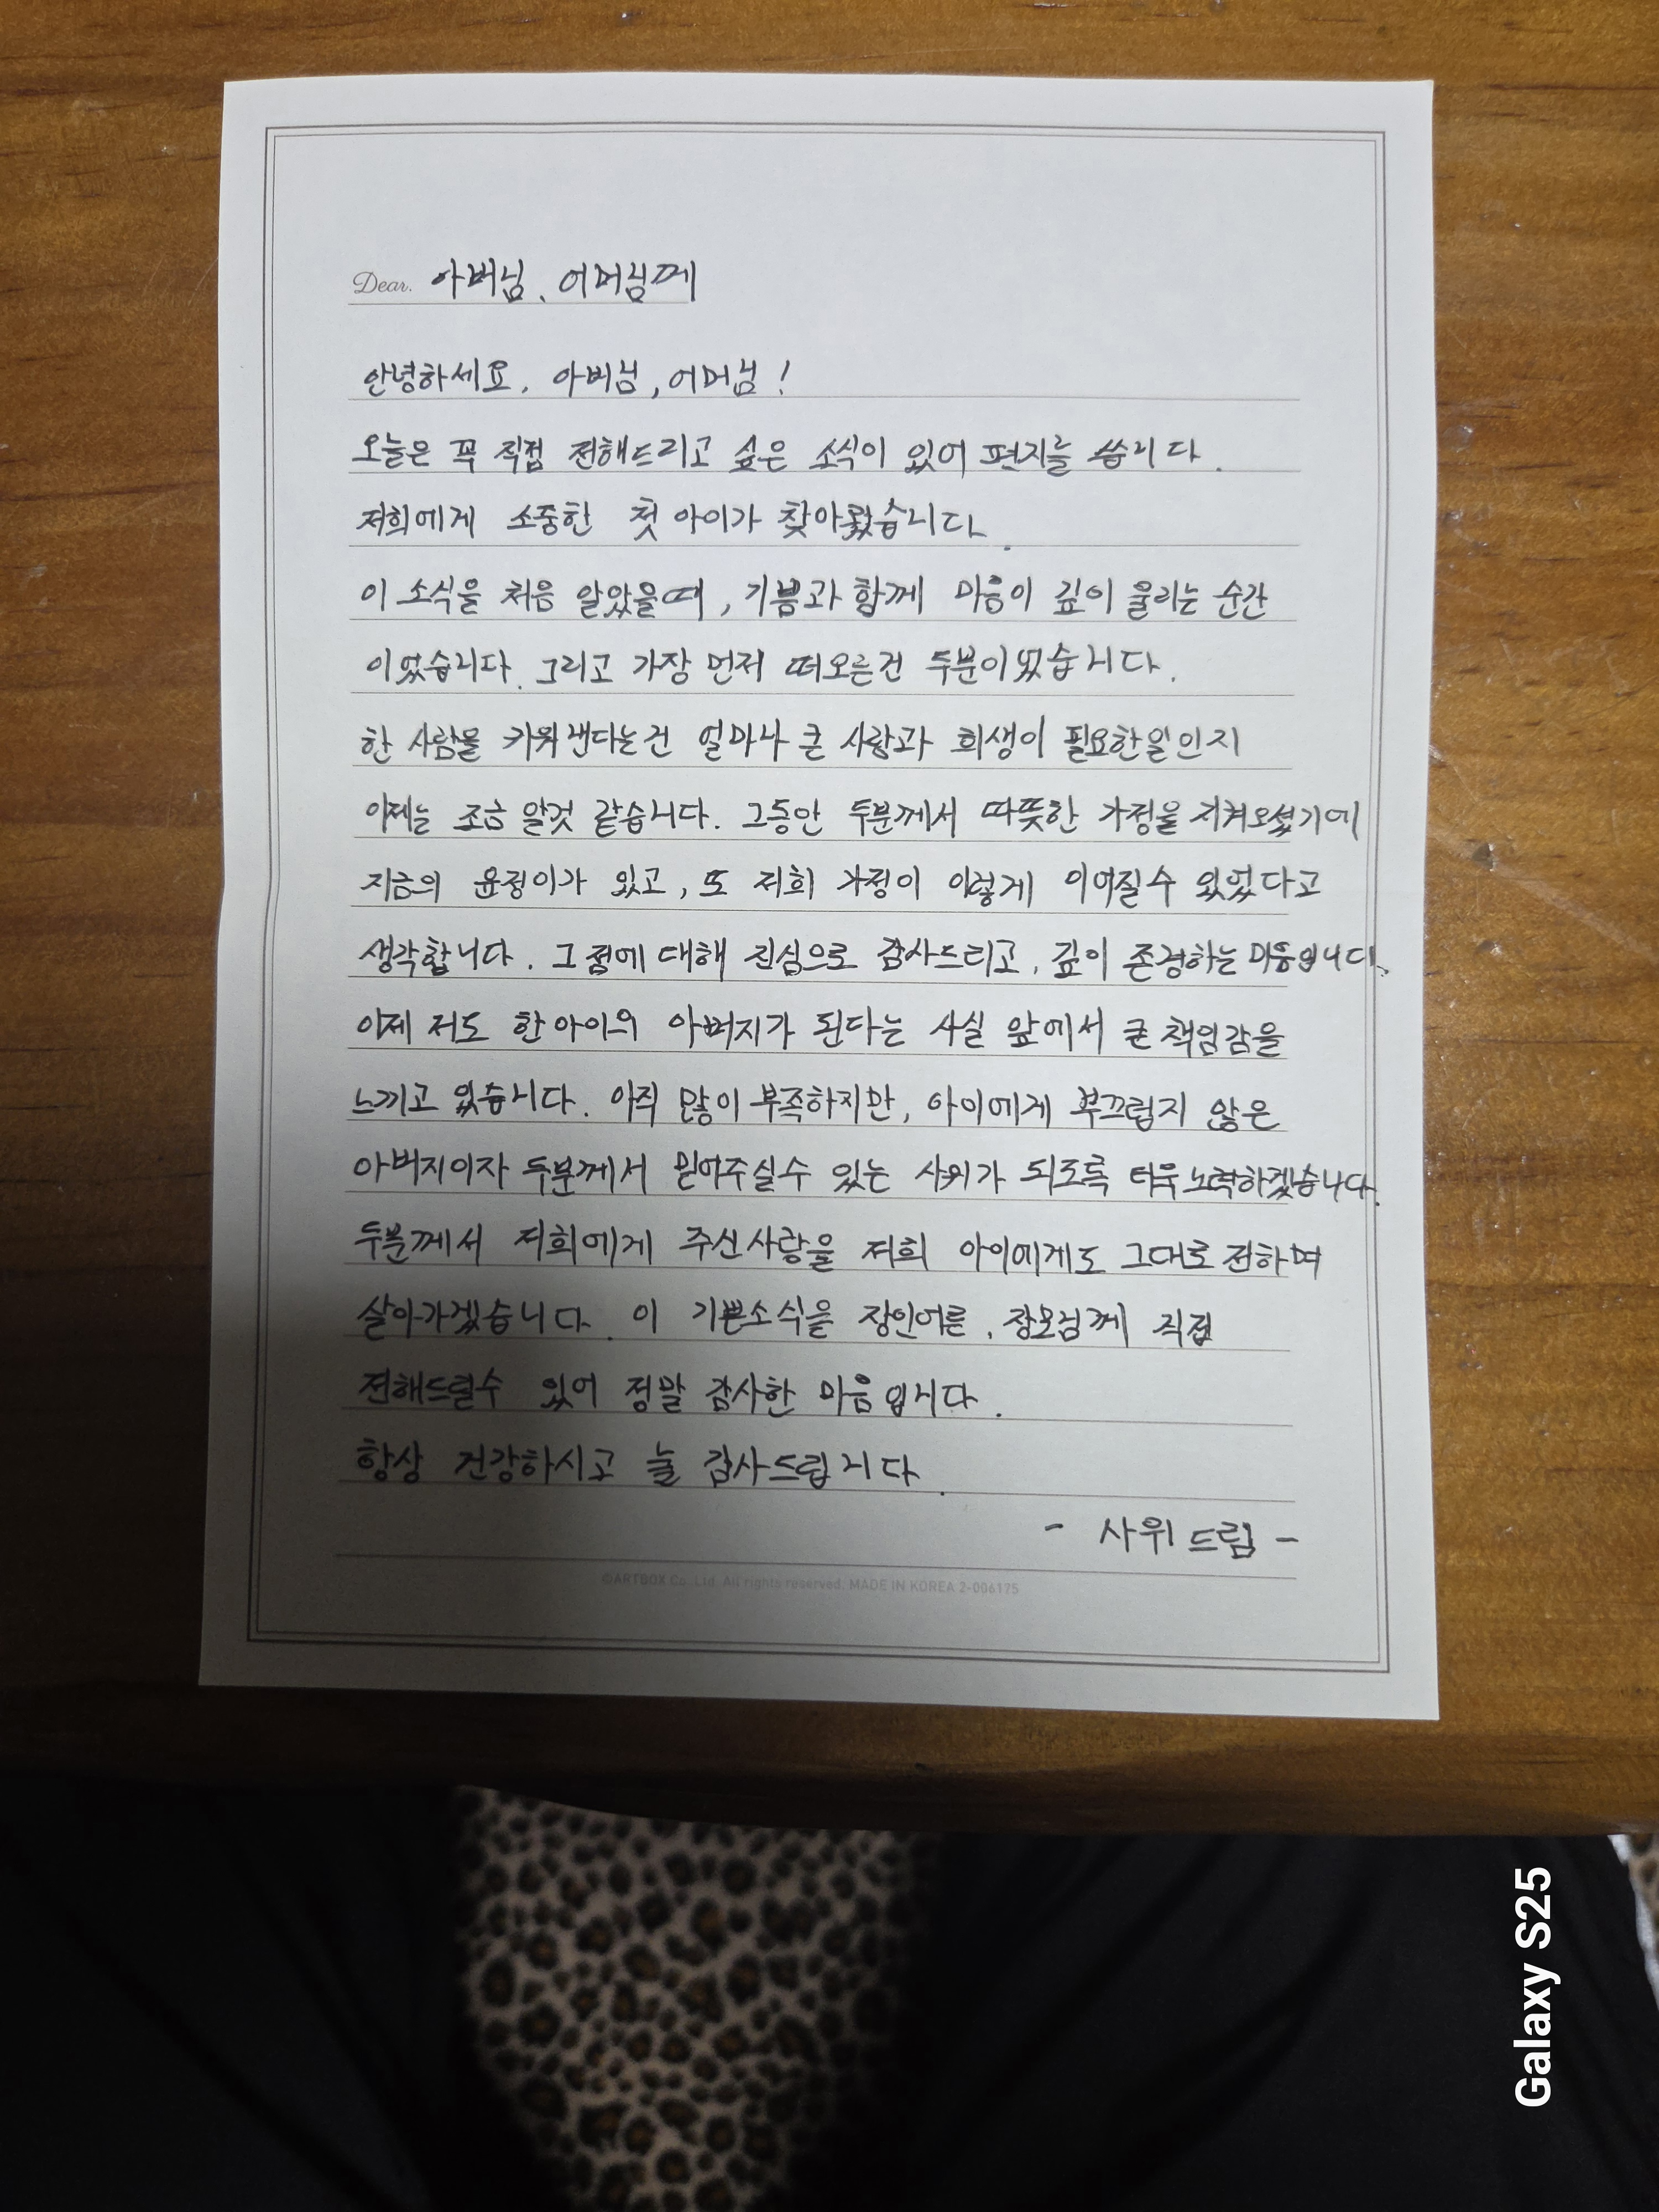 Dear. 아버님, 어머님께
안녕하세요, 아버님, 어머님!
오늘은 꼭 직접 전해드리고 싶은 소식이 있어 편지를 씁니다.
저희에게 소중한 첫 아이가 찾아왔습니다.
이 소식을 처음 알았을때, 기쁨과 함께 마음이 깊이 울리는 순간
이었습니다. 그리고 가장 먼저 떠오른건 두분이었습니다.
한 사람을 키워낸다는건 얼마나 큰 사랑과 희생이 필요한일인지
이제는 조금 알것 같습니다. 그동안 두분께서 따뜻한 가정을 지켜오셨기에
지금의 윤정이가 있고, 또 저희 가정이 이렇게 이어질수 있었다고
생각합니다. 그 점에 대해 진심으로 감사드리고, 깊이 존경하는 마음입니다.
이제 저도 한 아이의 아버지가 된다는 사실 앞에서 큰 책임감을
느끼고 있습니다. 아직 많이 부족하지만, 아이에게 부끄럽지 않은
아버지이자 두분께서 믿어주실수 있는 사위가 되도록 더욱 노력하겠습니다.
두분께서 저희에게 주신사랑을 저희 아이에게도 그대로 전하며
살아가겠습니다. 이 기쁜소식을 장인어른, 장모님께 직접
전해드릴수 있어 정말 감사한 마음입니다.
항상 건강하시고 늘 감사드립니다.
- 사위 드림 -
©ARTBOX Co. Ltd. All rights reserved. MADE IN KOREA 2-006175
Galaxy S25